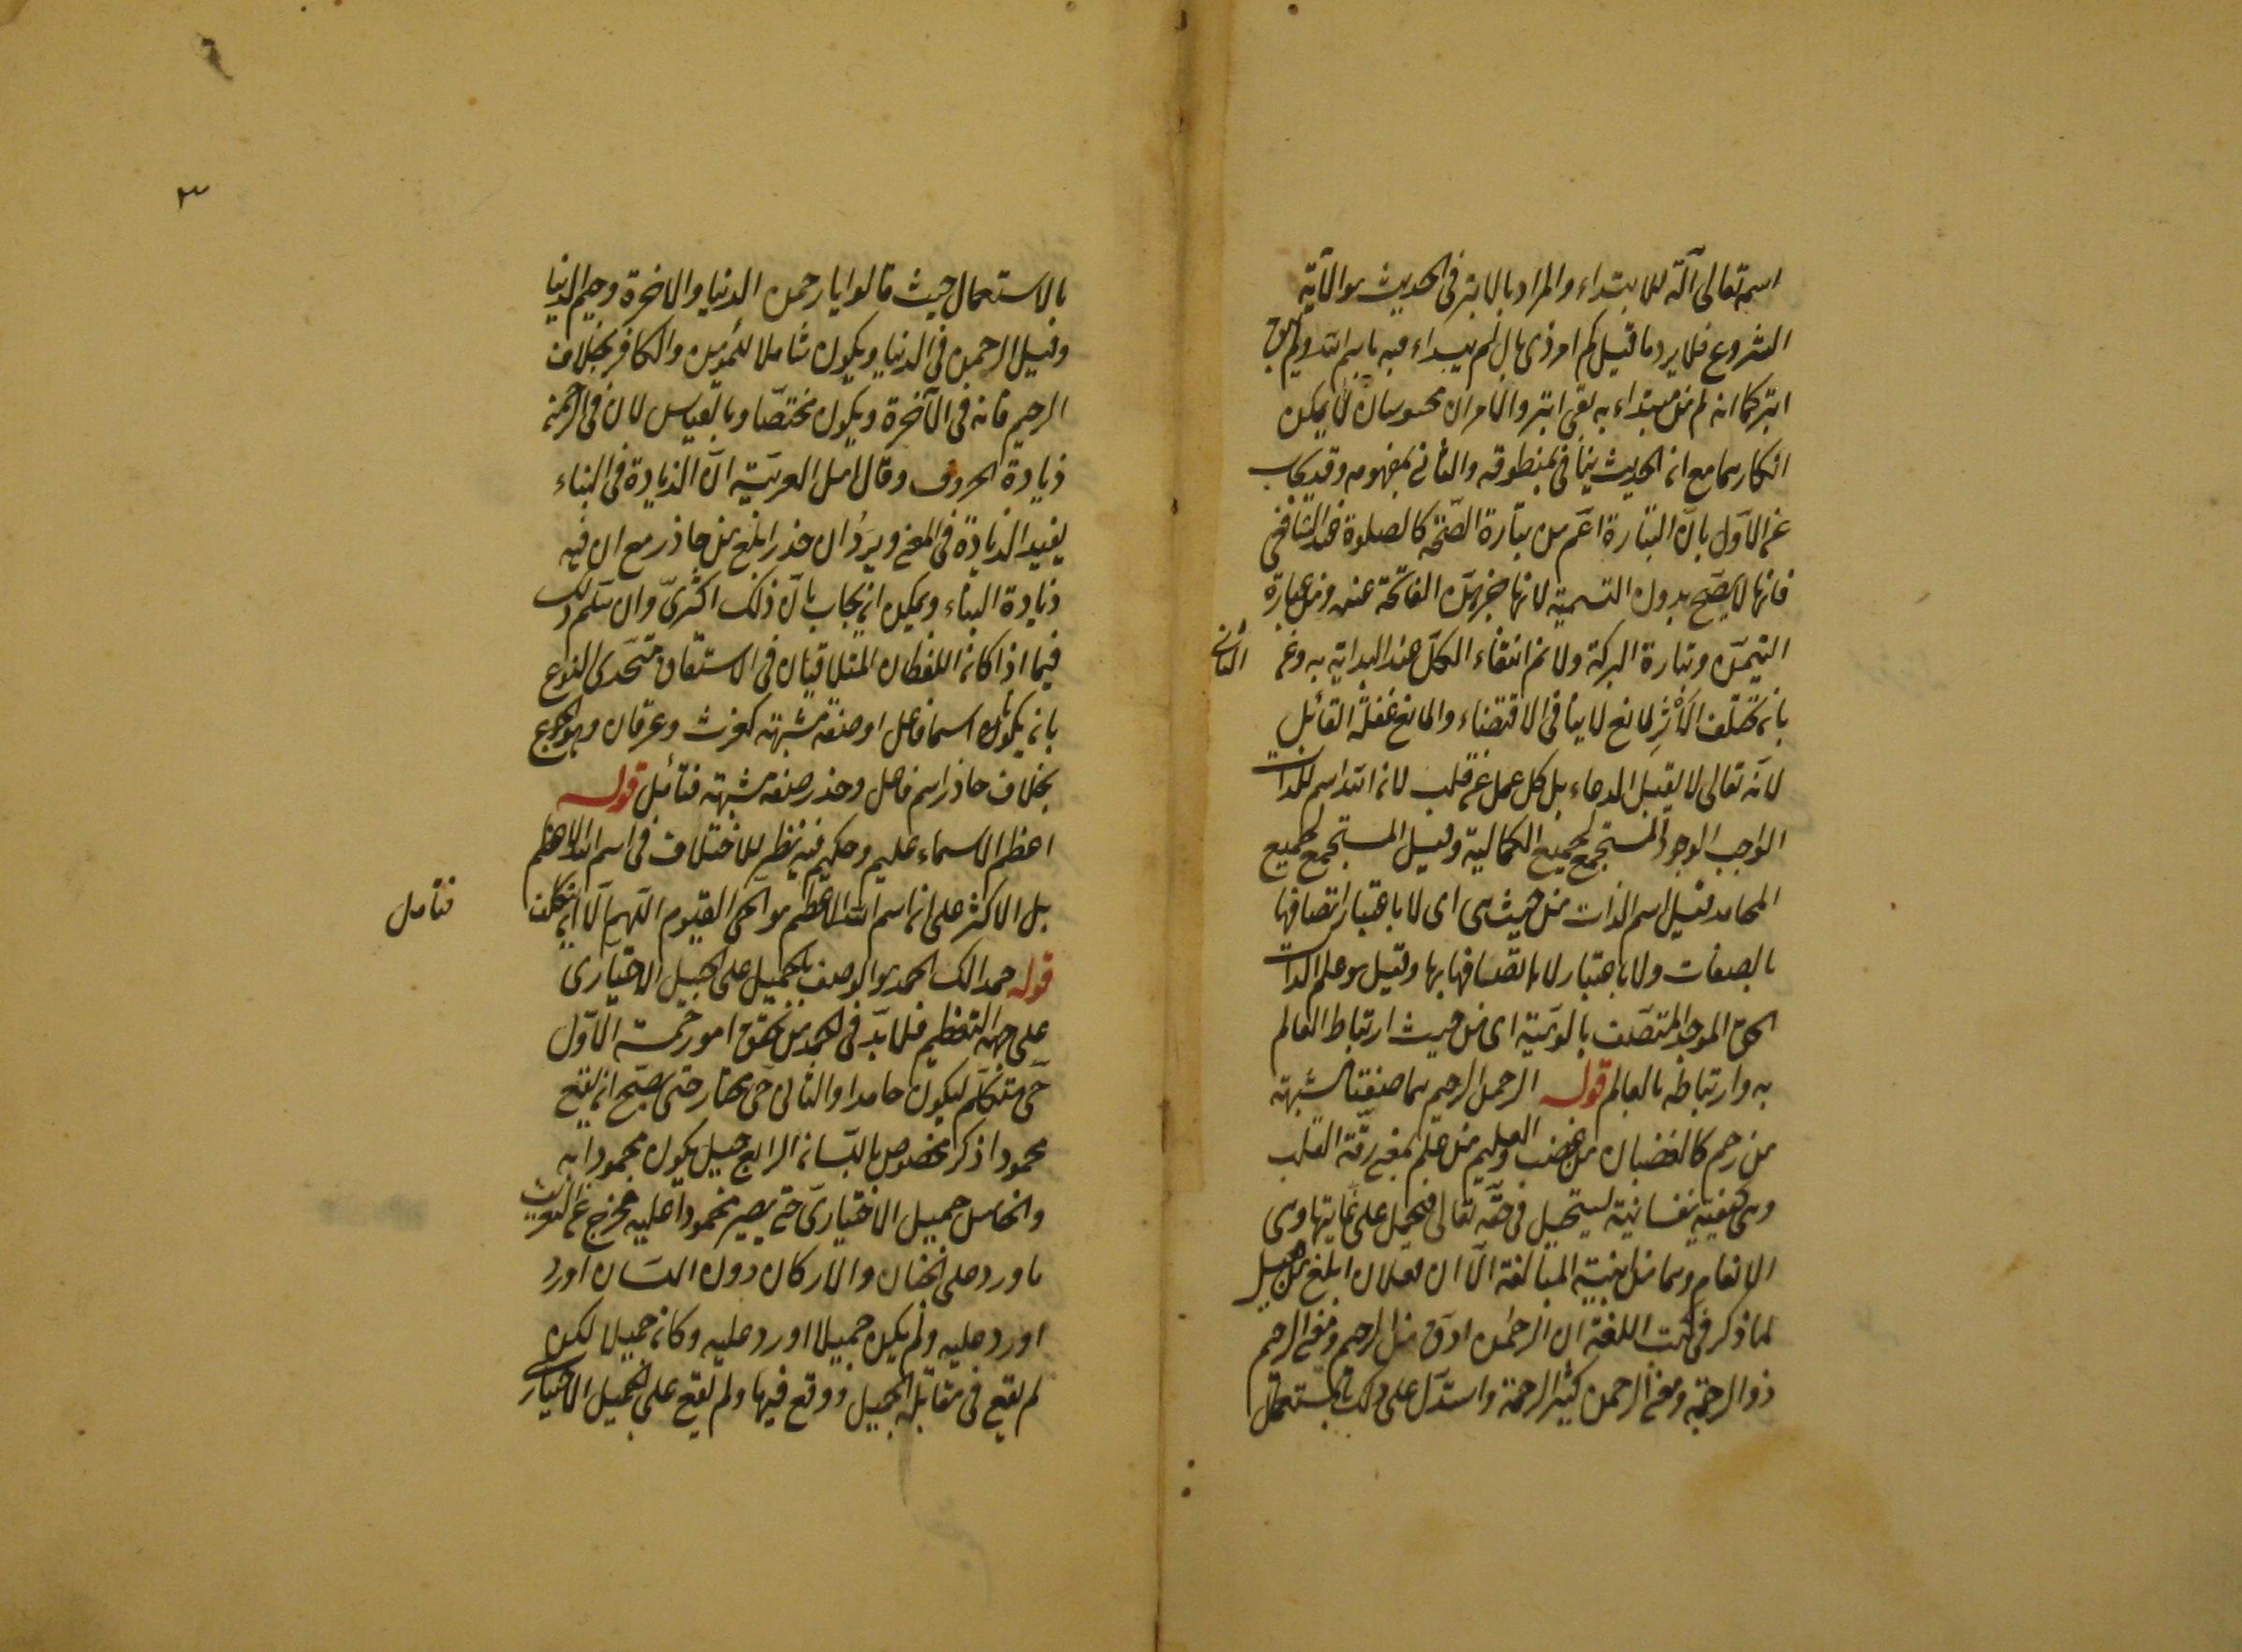 اسمه تعالى آلة للابتداء والمراد بالابتر فى الحديث هو الآتية
الشروع فلا يرد ما قيل كم امر ذى بال لم يبداء فيه باسم الله ولم يبق
ابتر كما انه لم من مبتداء به بقى ابتر والامران محسوسان لا يمكن
انكارهما مع ان الحديث ينافى بمنطوقه والثانى بمفهومه وقد يجاب
عن الاول بان البتارة اعم من بتارة الصحة كالصلوة عند الشافعى
فانها لا يصح بدون التسمية لانها جزء من الفاتحة عنده ومن عبارة
التيمن وبتارة البركة ولا ثم انتفاء الكل عند البداية به وعن الثانى
بان تخلف الاثر لمانع لا ينافى الاقتضاء والمانع غفلة القائل
لانه تعالى لا يقبل الدعاء بل كل عمل عن قلب لان الله اسم للذات
الواجب الوجود المستجمع لجميع الكمالية وقيل المستجمع لجميع
المحامد فقيل اسم الذات من حيث هى اى لا باعتبار اتصافها
بالصفات ولا باعتبار لا اتصافها بها وقيل هو علم الذات
الحق الموجد المتصف بالوهية اى من حيث ارتباط العالم
به وارتباطه بالعالم قوله الرحمن الرحيم هما صفتا مشبهة
من رحم كالغضبان من غضب والعليم من علم بمعنى رقة القلب
وهى كيفية نفسانية يستحيل فى حقه تعالى فيحمل على غايتها وهى
الانعام وهما من ابنية المبالغة الا ان فعلان ابلغ من فعيل
لما ذكر فى كتب اللغة ان الرحمن ارق من الرحيم ومعنى الرحيم
ذو الرحمة ومعنى الرحمن كثير الرحمة واستدل على ذلك بالاستعمال
٣
بالاستعمال حيث قالوا يا رحمن الدنيا والاخرة ورحيم الدنيا
وقيل الرحمن فى الدنيا ويكون شاملا للمؤمن والكافر بخلاف
الرحيم فانه فى الآخرة ويكون مختصا وبالقياس لان فى الرحمن
زيادة الحروف وقال اهل العربية ان الزيادة فى البناء
يفيد الزيادة فى المعنى ويرد ان حذر ابلغ من حاذر مع ان فيه
زيادة البناء ويمكن ان يجاب بان ذلك اكثرى وان سلم ذلك
فيما اذا كان اللفظان المتلاقيان فى الاشتقاق متحدى النوع
بان يكون اسما فاعل او صفة مشبهة كغرث وغرثان وهو الجوع
بخلاف حاذر اسم فاعل وحذر صفة مشبهة فتأمل قوله
اعظم الاسماء عليم وحكيم فيه نظر للاختلاف فى اسم الله الاعظم
بل الاكثر على ان اسم الله الاعظم هو الحى القيوم اللهم الا ان يتكلف
فتأمل
قوله حمدا لك الحمد هو الوصف بالجميل على الجميل الاختيارى
على جهة التعظيم فلا بد فى الحمد من تحقق امور خمسة الاول
حى متكلم ليكون حامدا والثانى حى مختار حتى يصح ان يقع
محمودا ذكر مخصوص باللسان الرابع جميل يكون محمودا به
والخامس جميل الاختيارى حتى يصير محمودا عليه فخرج عن التعريف
ما ورد على الجنان والاركان دون اللسان او رد
اورد عليه ولم يكن جميلا اورد عليه وكان جميلا لكن
لم يقع فى مقابلة الجميل ووقع فيها ولم يقع على الجميل الاختيارى